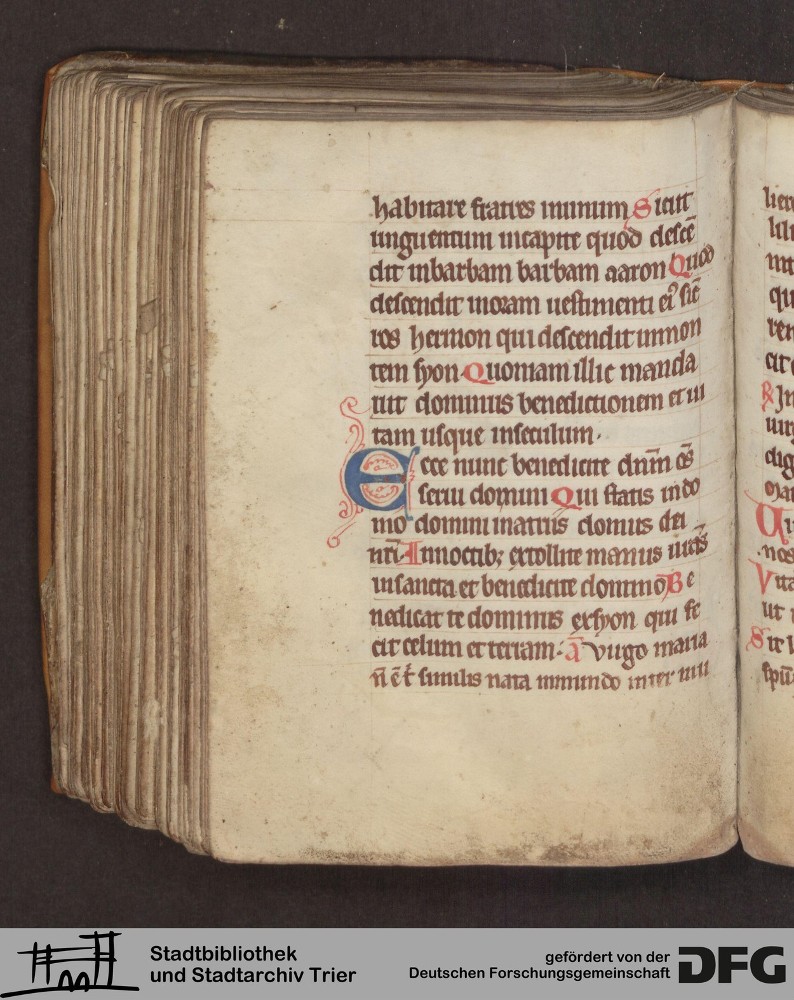 habitare fratres inunum Sicut
unguentum incapite quod descē
dit inbarbam barbam aaron Quod
descendit inoram uestimenti ei⁹ sic̄
ros hermon qui descendit inmon
tem syon Quoniam illic manda
uit dominus benedictionem et ui
tam usque inseculum.
Ecce nunc benedicite dn̄m om̄s
serui domini Qui statis indo
mo domini inatriis domus dei
nr̄i. Innoctib; extollite manus ur̄as
insancta et benedicite dominō Be
nedicat te dominus exsyon qui fe
cit celum et terram. ā Virgo maria
n̄ ē t̄ similis nata inmundo inter mu
lie
lili
int
qu
ren
cit
℟ In
uir
dig
Mat
Qui
nos
Vita
ut
Sit
spū
Stadtbibliothek
und Stadtarchiv Trier
gefördert von der
Deutschen Forschungsgemeinschaft
DFG